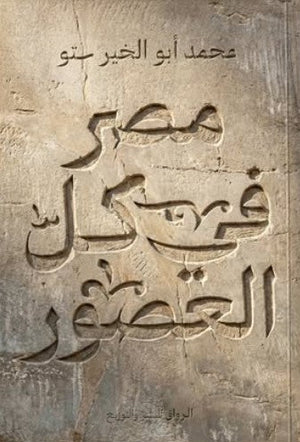 محمد أبو الخير ستو
مصر
في
كل
العصور
الرواق للنشر والتوزيع